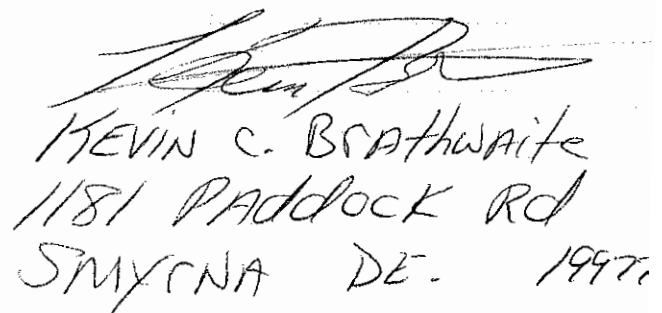 KEVIN C. BrAthwAite
1181 PAddocK Rd
SMyrNA DE. 1997